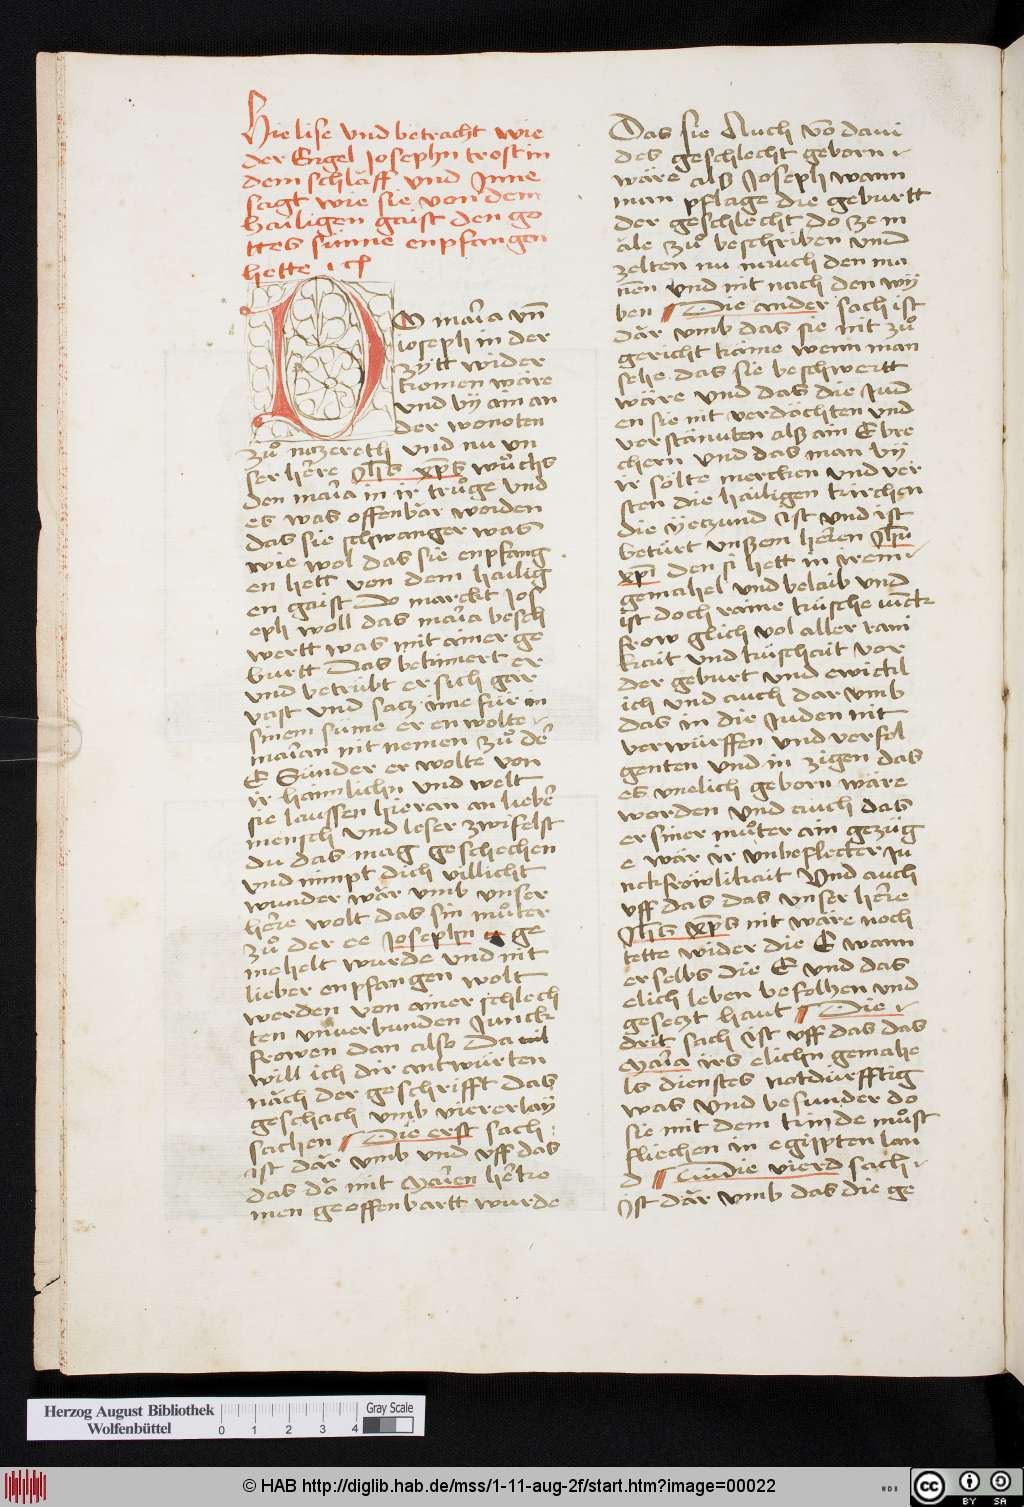 Hie lise vnd betracht wie
der Engel Josephn trost in
dem schläff vnd Inne
sagt wie sie von dem
hailigen gaist den go
ttes sunne enpfangen
hette
DO maria vn̄
ioseph in der
zytt wider
komen wäre
vnd by ain an
der wonoten
zů nazereth vnd nu vn
ser here Jhs xps wůchs
den maria in ir trůge vnd
es was offenbär worden
das sie schwanger was
wie wol das sie enpfang
en hett von dem hailig
en gaist Do marckt Jos
eph woll das maria besch
wertt was mit ainer ge
burtt Das bekinnert er
vnd betrübt er sich gar
vast vnd satz ime für in
sinem sinne er en wolte
marian nit nemen zů der
E Sunder er wolte von
ir haimlichn vnd welt
sie laussen hieran an lieber
mensch vnd leser zwifelst
du das mag geschechen
vnd nimpt dich villicht
wunder wär vmb vnser
here wolt das sin můter
zů der ee Josephn ge
mehelt wurde vnd nit
lieber enpfangen wolt
werden von ainer schlech
ten vnuerbunden Junck
frowen dan also Da
will ich dir antwürten
näch der geschrifft das
geschach vmb viererlay
sachen Die erst sach
ist där vmb vnd vff das
das dä mit Marien herko
men geoffenbartt wurde
Das sie Auch vō daui
des geschlecht geborn
wäre als Joseph wann
man pflage die geburtt
der geschlecht do ze m
äle zů beschriben vnd
zelten nu nauch den ma
nen vnd nit nach den wy
ben Die ander sach ist
där vmb das sie nit zů
gericht käme wenn man
sehe das sie beschwertt
wäre vnd das die Jud
en sie nit verdächten vnd
verstainten als ain Ebre
chern vnd das man by
ir sölte mercken vnd ver
sten die hailigen kirchen
die yetzund ist vnd ist
betürt vnsem heren Jhu
xpi den si hett in irem
gemahel vnd belaib vnd
ist doch raine küsche iuck
frow glich vol aller raini
kait vnd küschait vor
der geburt vnd ewickl
ich vnd auch dar vmb
das in die Juden nit
verwürffen vnd verfol
genten vnd in zigen das
es vnelich geborn wäre
worden vnd auch das
er siner můter ain gezüg
e wär ir vnbeflecter Ju
nckfröwlikait Vnd auch
vff das das vnser here
Jhs xps nit wäre noch
tette wider die E wann
er selbs die E vnd das
elich leben befolhen vnd
gesetzt haut Die
drit sach ist vff das das
Maria irs elichn gemahe
ls dienstes notdürfftig
was vnd besunder do
sie mit dem kinde můst
fliechen in egippten lan
d die vierd sach
ist där vmb das die ge
Herzog August Bibliothek
Wolfenbüttel
0 1 2 3 4
Gray Scale
© HAB http://diglib.hab.de/mss/1-11-aug-2f/start.htm?image=00022
WDB
CC BY SA